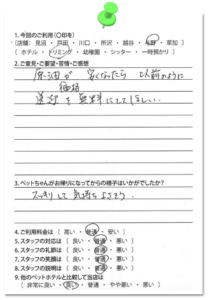 1.今回のご利用(〇印を)
[店舗: 見沼 ・ 戸田 ・ 川口 ・ 所沢 ・ 越谷 ・ 与野 ・ 草加 ]
[ ホテル ・ トリミング ・ 幼稚園 ・ シッター ・ 一時預かり ]
2.ご意見・ご要望・苦情・ご感想
原油が 安くなったら 以前のように
価格
送迎を無料にしてほしい.
3.ペットちゃんがお帰りになってからの様子はいかがでしたか?
スッキリして 気持ちよさそう.
4.ご利用料金は [ 高い ・ 普通 ・ 安い ]
5.スタッフの対応は [ 良い ・ 普通 ・ 悪い ]
6.スタッフの節度は [ 良い ・ 普通 ・ 悪い ]
7.スタッフの笑顔は [ 良い ・ 普通 ・ 悪い ]
8.スタッフの説明は [ 良い ・ 普通 ・ 悪い ]
9.他のペットホテルと比較して当店は
[ 非常に良い ・ 良い ・ 普通 ・ やや悪い ・ 悪い ]